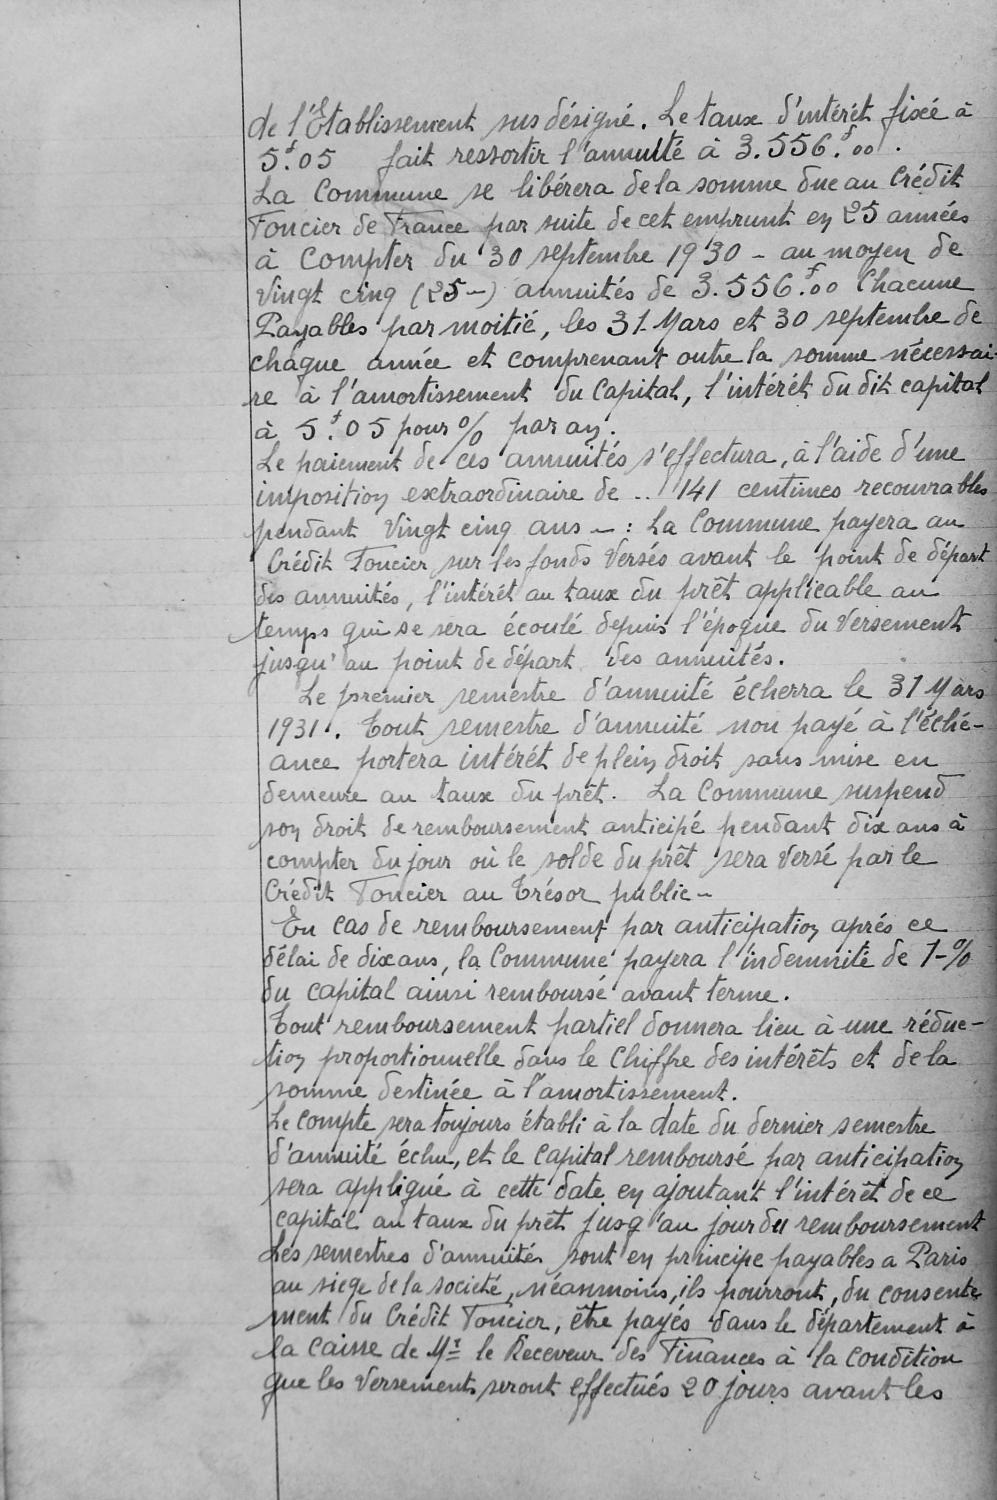 de l'Etablissement sus désigné. Le taux d'intérêt fixée à
5f.05 fait ressortir l'annuité à 3.556.f00.
La Commune se libérera de la somme due au Crédit
Foncier de France par suite de cet emprunt en 25 années
à compter du 30 septembre 1930 - au moyen de
Vingt cinq (25-) annuités de 3.556.f00 Chacune
Payables par moitié, les 31 Mars et 30 septembre de
chaque année et comprenant outre la somme nécessai-
re à l'amortissement du Capital, l'intérêt du dit capital
à 5f.05 pour % par an.
Le paiement de ces annuités s'effectura, à l'aide d'une
imposition extraordinaire de .. 141 centimes recouvrables
pendant Vingt cinq ans - : La Commune payera au
Crédit Foncier, sur les fonds Versés avant le point de départ
des annuités, l'intérêt au taux du prêt applicable au
temps qui se sera écoulé depuis l'époque du Versement
jusqu'au point de départ des annuités.
Le premier semestre d'annuité écherra le 31 Mars
1931. Tout semestre d'annuité non payé à l'éché-
ance portera intérêt de plein droit sans mise en
demeure au taux du prêt. La Commune suspend
son droit de remboursement anticipé pendant dix ans à
compter du jour où le solde du prêt sera Versé par le
Crédit Foncier au Trésor public -
En cas de remboursement par anticipation après ce
délai de dix ans, la Commune payera l'indemnité de 1-%
du capital ainsi remboursé avant terme.
Tout remboursement partiel donnera lieu à une réduc-
tion proportionnelle dans le Chiffre des intérêts et de la
somme destinée à l'amortissement.
Le compte sera toujours établi à la date du dernier semestre
d'annuité échu, et le capital remboursé par anticipation
sera appliqué à cette date en ajoutant l'intérêt de ce
capital au taux du prêt jusqu'au jour du remboursement
Les semestres d'annuités sont en principe payables a Paris
au siege de la societé, néanmoins, ils pourront, du consente
ment du Crédit Foncier, être payés dans le département à
la caisse de Mr le Receveur des Finances à la condition
que les Versements seront effectués 20 jours avant les